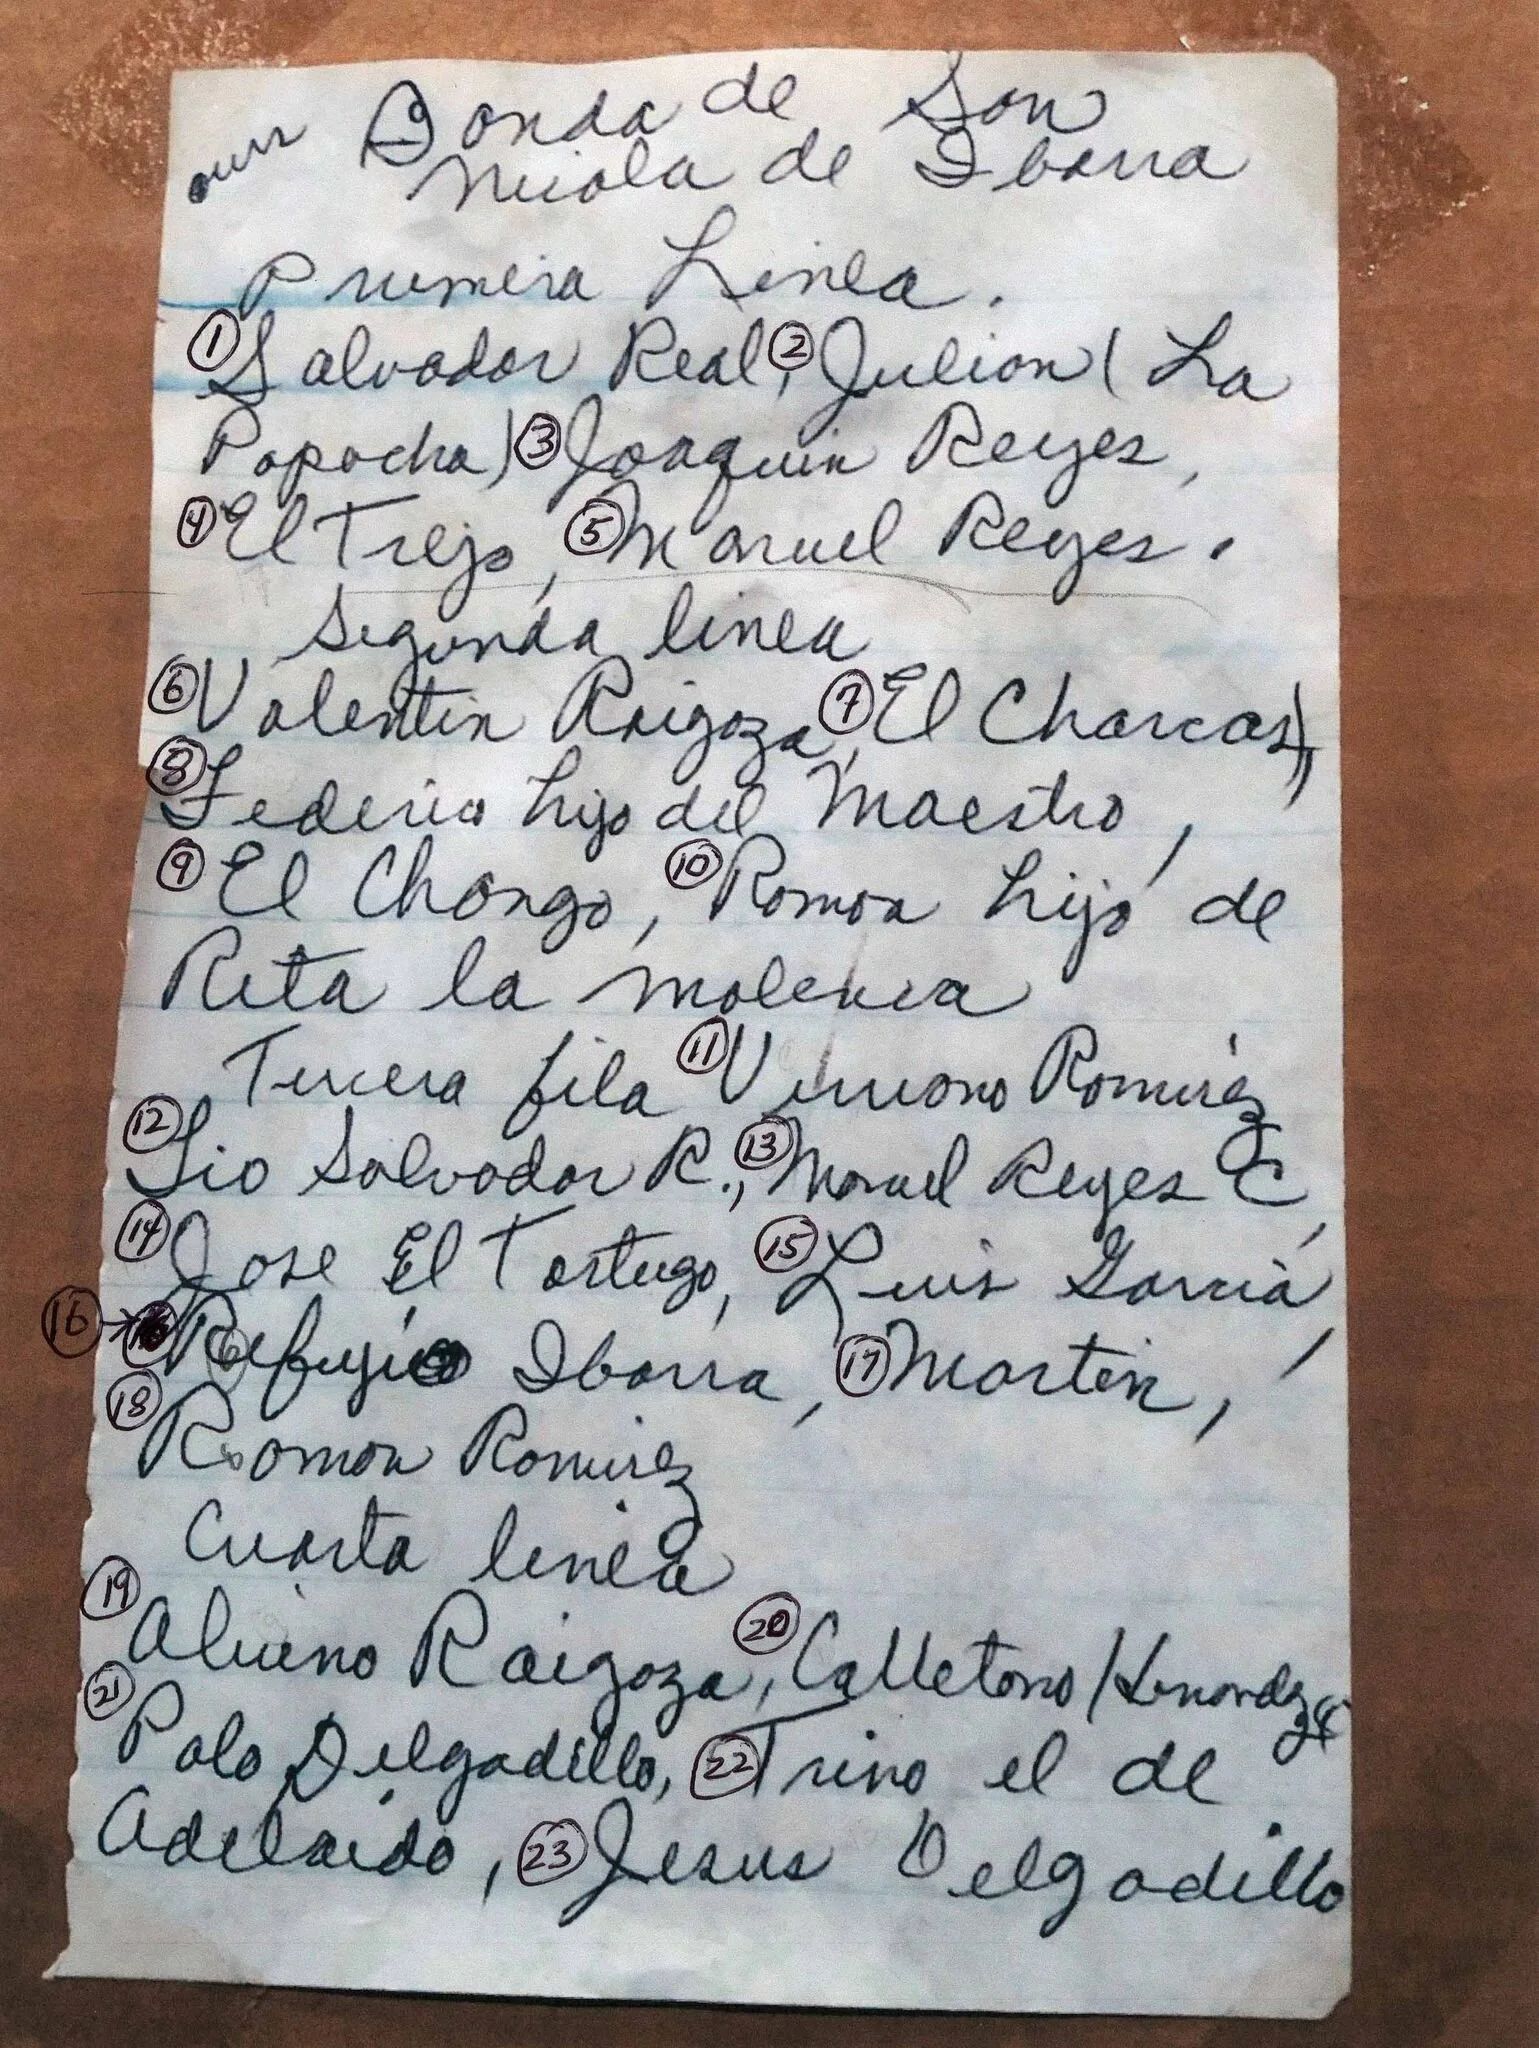 Banda de San
Nicola de Ibarra
Primera Linea.
① Salvador Real, ② Julian ( La
Popocha) ③ Joaquin Reyes,
④ El Trejo, ⑤ Manuel Reyes.
Segunda linea
⑥ Valentin Raigoza, ⑦ El Charcas),
⑧ Federico hijo del Maestro,
⑨ El Chango, ⑩ Ramon hijo de
Rita la molenera
Tercera fila ⑪ Viviano Ramirez
⑫ Tio Salvador R., ⑬ Manuel Reyes C,
⑭ Jose El Tortugo, ⑮ Luis Garcia,
⑯ → Refugio Ibarra, ⑰ Martin,
⑱ Ramon Ramirez
Cuarta linea
⑲ Alvino Raigoza, ⑳ Calletano Hernandez
㉑ Polo Delgadillo, ㉒ Trino el de
Adelaido, ㉓ Jesus Delgadillo